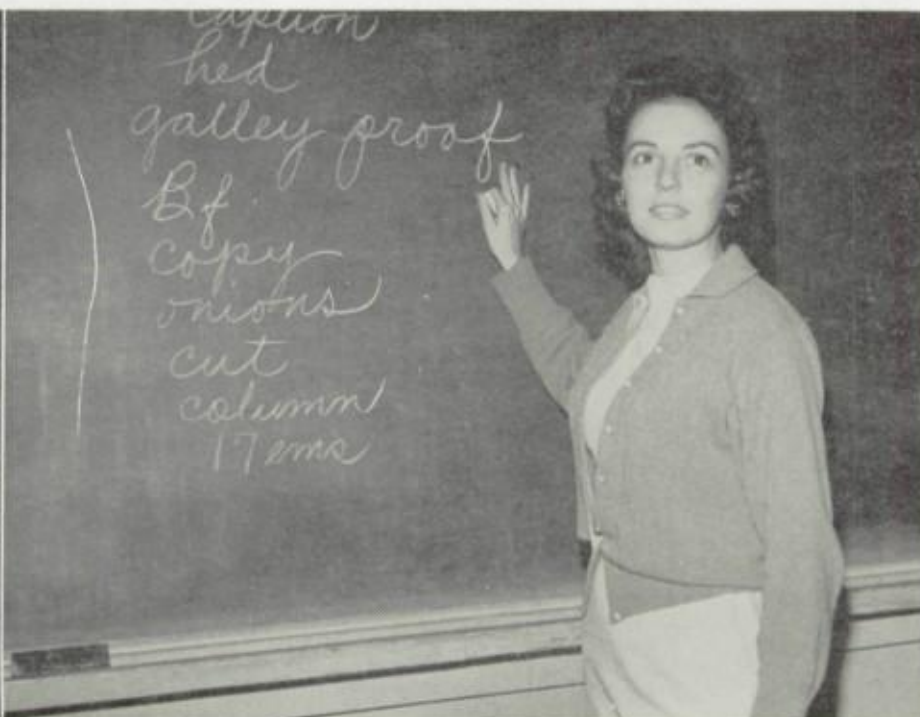 caption
hed
galley proof
Bf
copy
onions
cut
column
17 ems